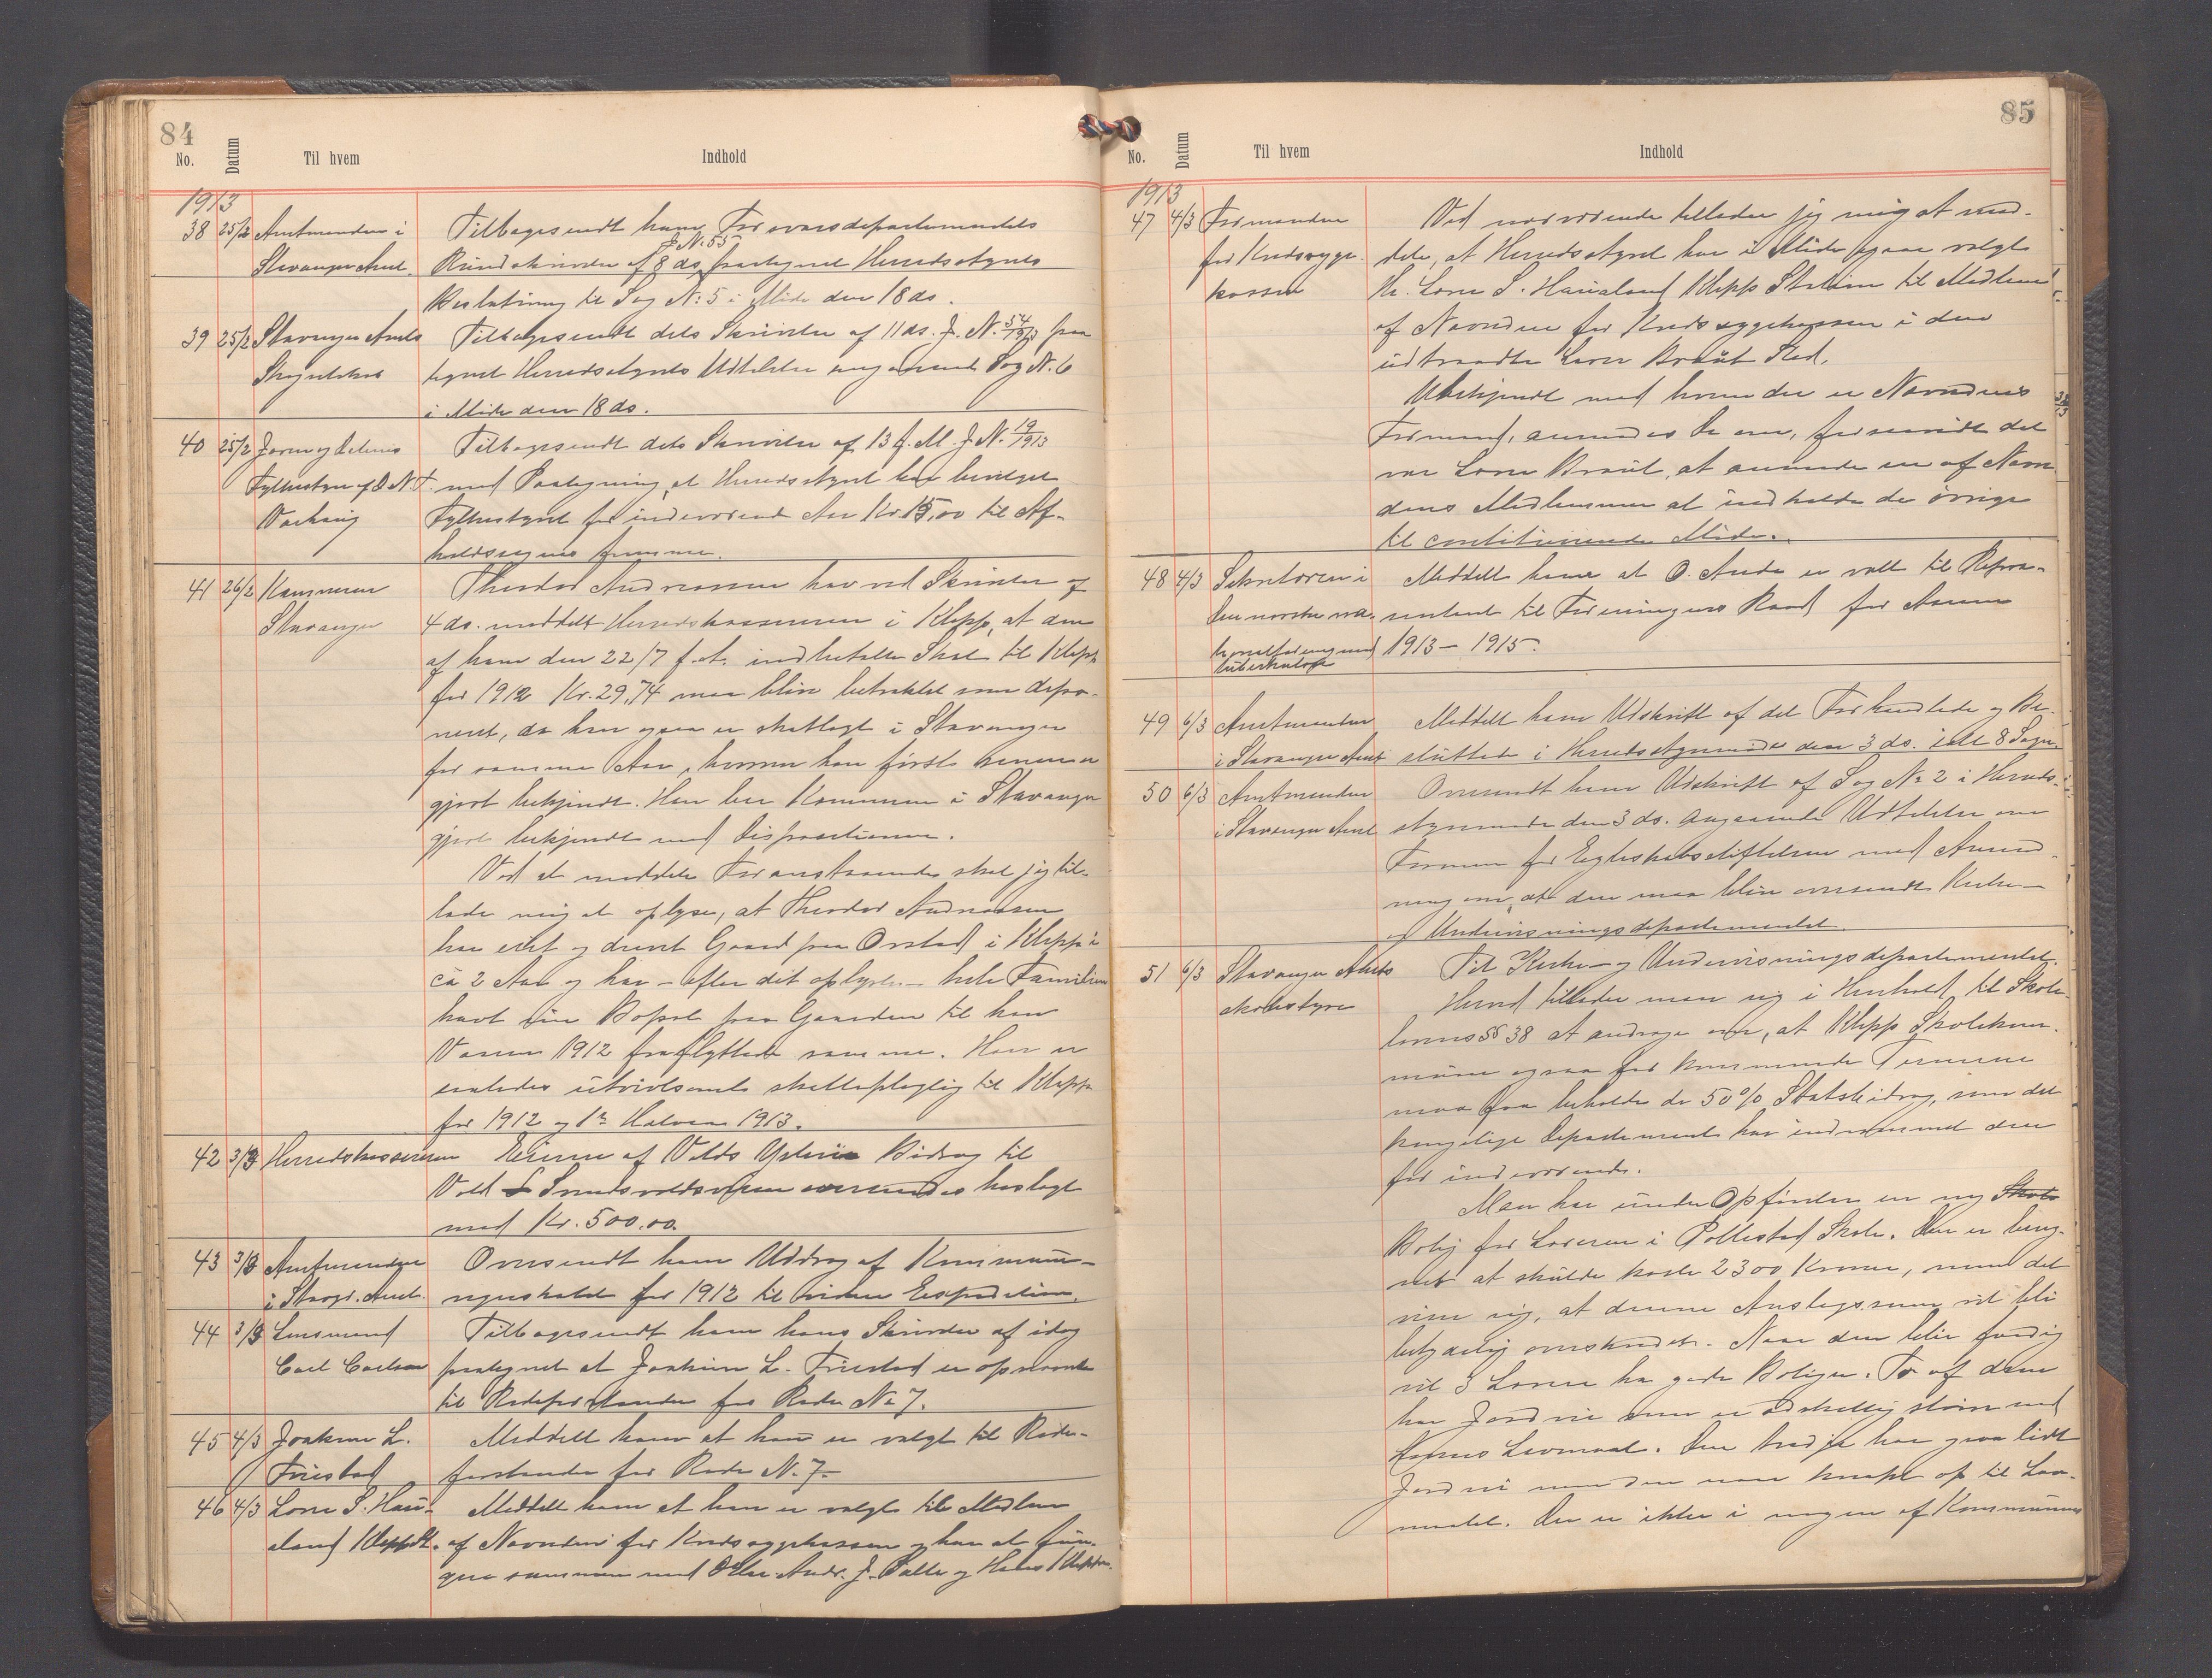 84
No. Datum Til hvem Indhold
1913
38 25/2 Amtmanden i Tilbagesendt ham Forsvarsdepartementets
J. N. 55
Stavanger Amt. Rundskrivelse af 8 ds, paategnet Herredsstyrets
Beslutning til Sag N: 5 i Møde den 18 ds.
39 25/2 Stavanger Amts Tilbagesendt dets Skrivelse af 11 ds. J. N. 54/1913 paa
Skogselskab tegnet Herredsstyrets Udtalelse angaaende Sag N. 6
i Møde den 18 ds.
40 25/2 Jæren og Dalenes Tilbagesendt dets Skrivelse af 13 f. M. J. N. 19/1913
Fylkesstyre af D. N. T. med Paategning, at Herredsstyret har bevilget
Varhaug Fylkesstyret for indeværende Aar Kr. 15,00 til Af-
holdssagens fremme.
41 26/2 Kæmneren Theodor Andreassen har ved Skrivelse af
Stavanger 4 ds. meddelt Herredskassereren i Klepp, at den
af ham den 22/7 f. A. indbetalte Skat til Klepp
for 1912 Kr. 29,74 maa blive betraktet som depo-
neret, da han ogsaa er skatlagt i Stavanger
for samme Aar, hvorom han først senere er
gjort bekjendt. Han ber Kommunen i Stavanger
gjort bekjendt med Dispositionen.
Ved at meddele Foranstaaende skal jeg til-
lade mig at oplyse, at Theodor Andreassen
har eiet og drevet Gaard paa Orstad i Klepp i
ca 2 Aar og har - efter det oplyste - hele Familien
havt sin Bopæl paa Gaarden til han
Vaaren 1912 fraflyttede samme. Han er
saaledes utvivlsomt skattepligtig til Klepp
for 1912 og 1ste Halvaar 1913.
42 3/3 Herredskassereren Eierne af Volds Ysteris Bidrag til
Vold - Snudsvoldsveien ansendes heslagt
med Kr. 500.00.
43 3/3 Amtmanden Oversendt ham Uddrag af Kommune-
i Stavgr. Amt. regnskabet for 1912 til videre Expedition.
44 3/3 Lensmand Tilbagesendt ham hans Skrivelse af idag
Carl Carlsen paategnet at Joakim L. Friestad er opnævnt
til Rodeforstander for Rode N: 7.
45 4/3 Joakim L. Meddelt ham at han er valgt til Rode-
Friestad forstander for Rode N. 7.
46 4/3 Lars S. Hau- Meddelt ham at han er valgt til Medlem
aland Klepp St. af Nævnden for Kredssygekassen og har at fun-
gere sammen med Andr. J. Salte og Hans Kleppe.
85
No. Datum Til hvem Indhold
1913
47 4/3 Formanden Ved nærværende tillader jeg mig at med-
for Kredssyge- dele, at Herredsstyret har i Møde igaar valgt
kassen Hr. Lars S. Haualand Klepp Station til Medlem
af Nævnden for Kredssygekassen i den
udtraadte Lars Braut Sted.
Ubekjendt med hvem der er Nævndens
Formand, anmodes De om, forsaavidt det
var Lars Braut, at anmode en af Nævn-
dens Medlemmer at indkalde de øvrige
til constituerende Møde.
48 4/3 Sekretæren i Meddelt ham at O. Anda er valt til Repræ-
Den norske na- sentant til Foreningens Raad for Aarene
tionalforening mod 1913 - 1915.
tuberkulose
49 6/3 Amtmanden Meddelt ham Udskrift af det Forhandlede og Be-
i Stavanger Amt sluttede i Herredsstyremøde den 3 ds. ialt 8 Sager.
50 6/3 Amtmanden Oversendt ham Udskrift af Sag N: 2 i Herreds-
i Stavanger Amt styremøde den 3 ds. angaaende Udtalelse om
Formen for Egteskabsstiftelsen med Anmod-
ning om, at den maa blive oversendt Kirke-
og Undervisningsdepartementet.
51 6/3 Stavanger Amts Til Kirke- og Undervisningsdepartementet.
skolestyre Herved tillader man sig i Henhold til Skole-
lovens §§ 38 at andrage om, at Klepp Skolekom-
mune ogsaa for kommende Termin
maa faa beholde de 50 % Statsbidrag, som det
kongelige Departement har indrømmet den
for indeværende.
Man har under Opførelse en ny Skole
Bolig for Læreren i Pollestad Skole. Den er bereg-
net at skulde koste 2300 Kroner, men det
viser sig, at denne Anslagssum vil bli
betydelig overskredet. Naar den blir færdig
vil 3 Lærere ha gode Boliger. To af dem
har Jordvei som er adskillig større end
Lovens Lovmaal. Den tredje har ogsaa lidt
Jordvei men den naar knapt op til Lov-
maalet. Der er ikke i nogen af Kommunens